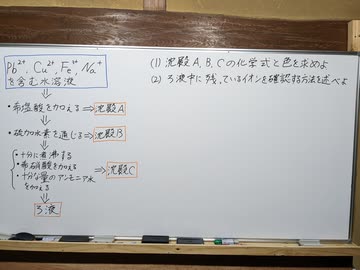 Pb²⁺, Cu²⁺, Fe³⁺, Na⁺
を含む水溶液
・希塩酸を加える⇒沈殿A
・硫化水素を通じる⇒沈殿B
・十分に煮沸する
・希硝酸を加える
・十分な量のアンモニア水
を加える
⇒沈殿C
ろ液
(1) 沈殿A,B,Cの化学式と色を求めよ
(2) ろ液中に残っているイオンを確認する方法を述べよ